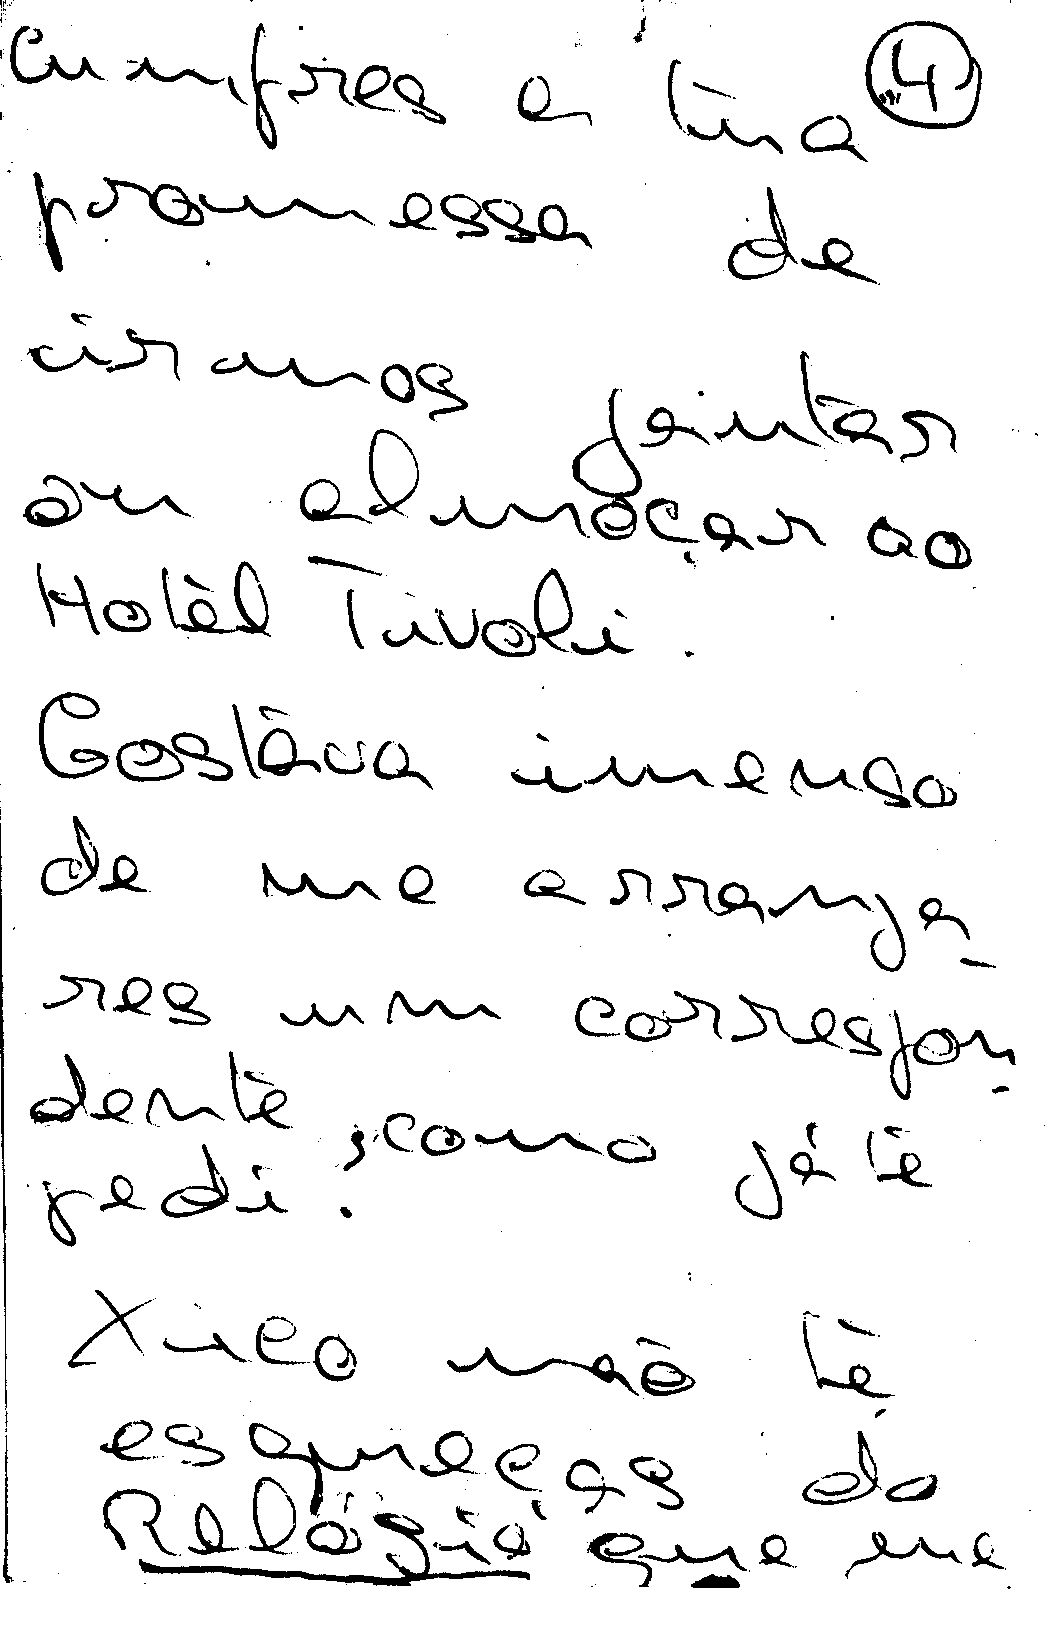 Cumpres a tua ④
promessa de
irmos jantar
ou almoçar ao
Hotel Tivoli.
Gostava imenso
de me arranja-
res um correspon-
dente, como já te
pedi.
Xico não te
esqueças do
Relógio que me